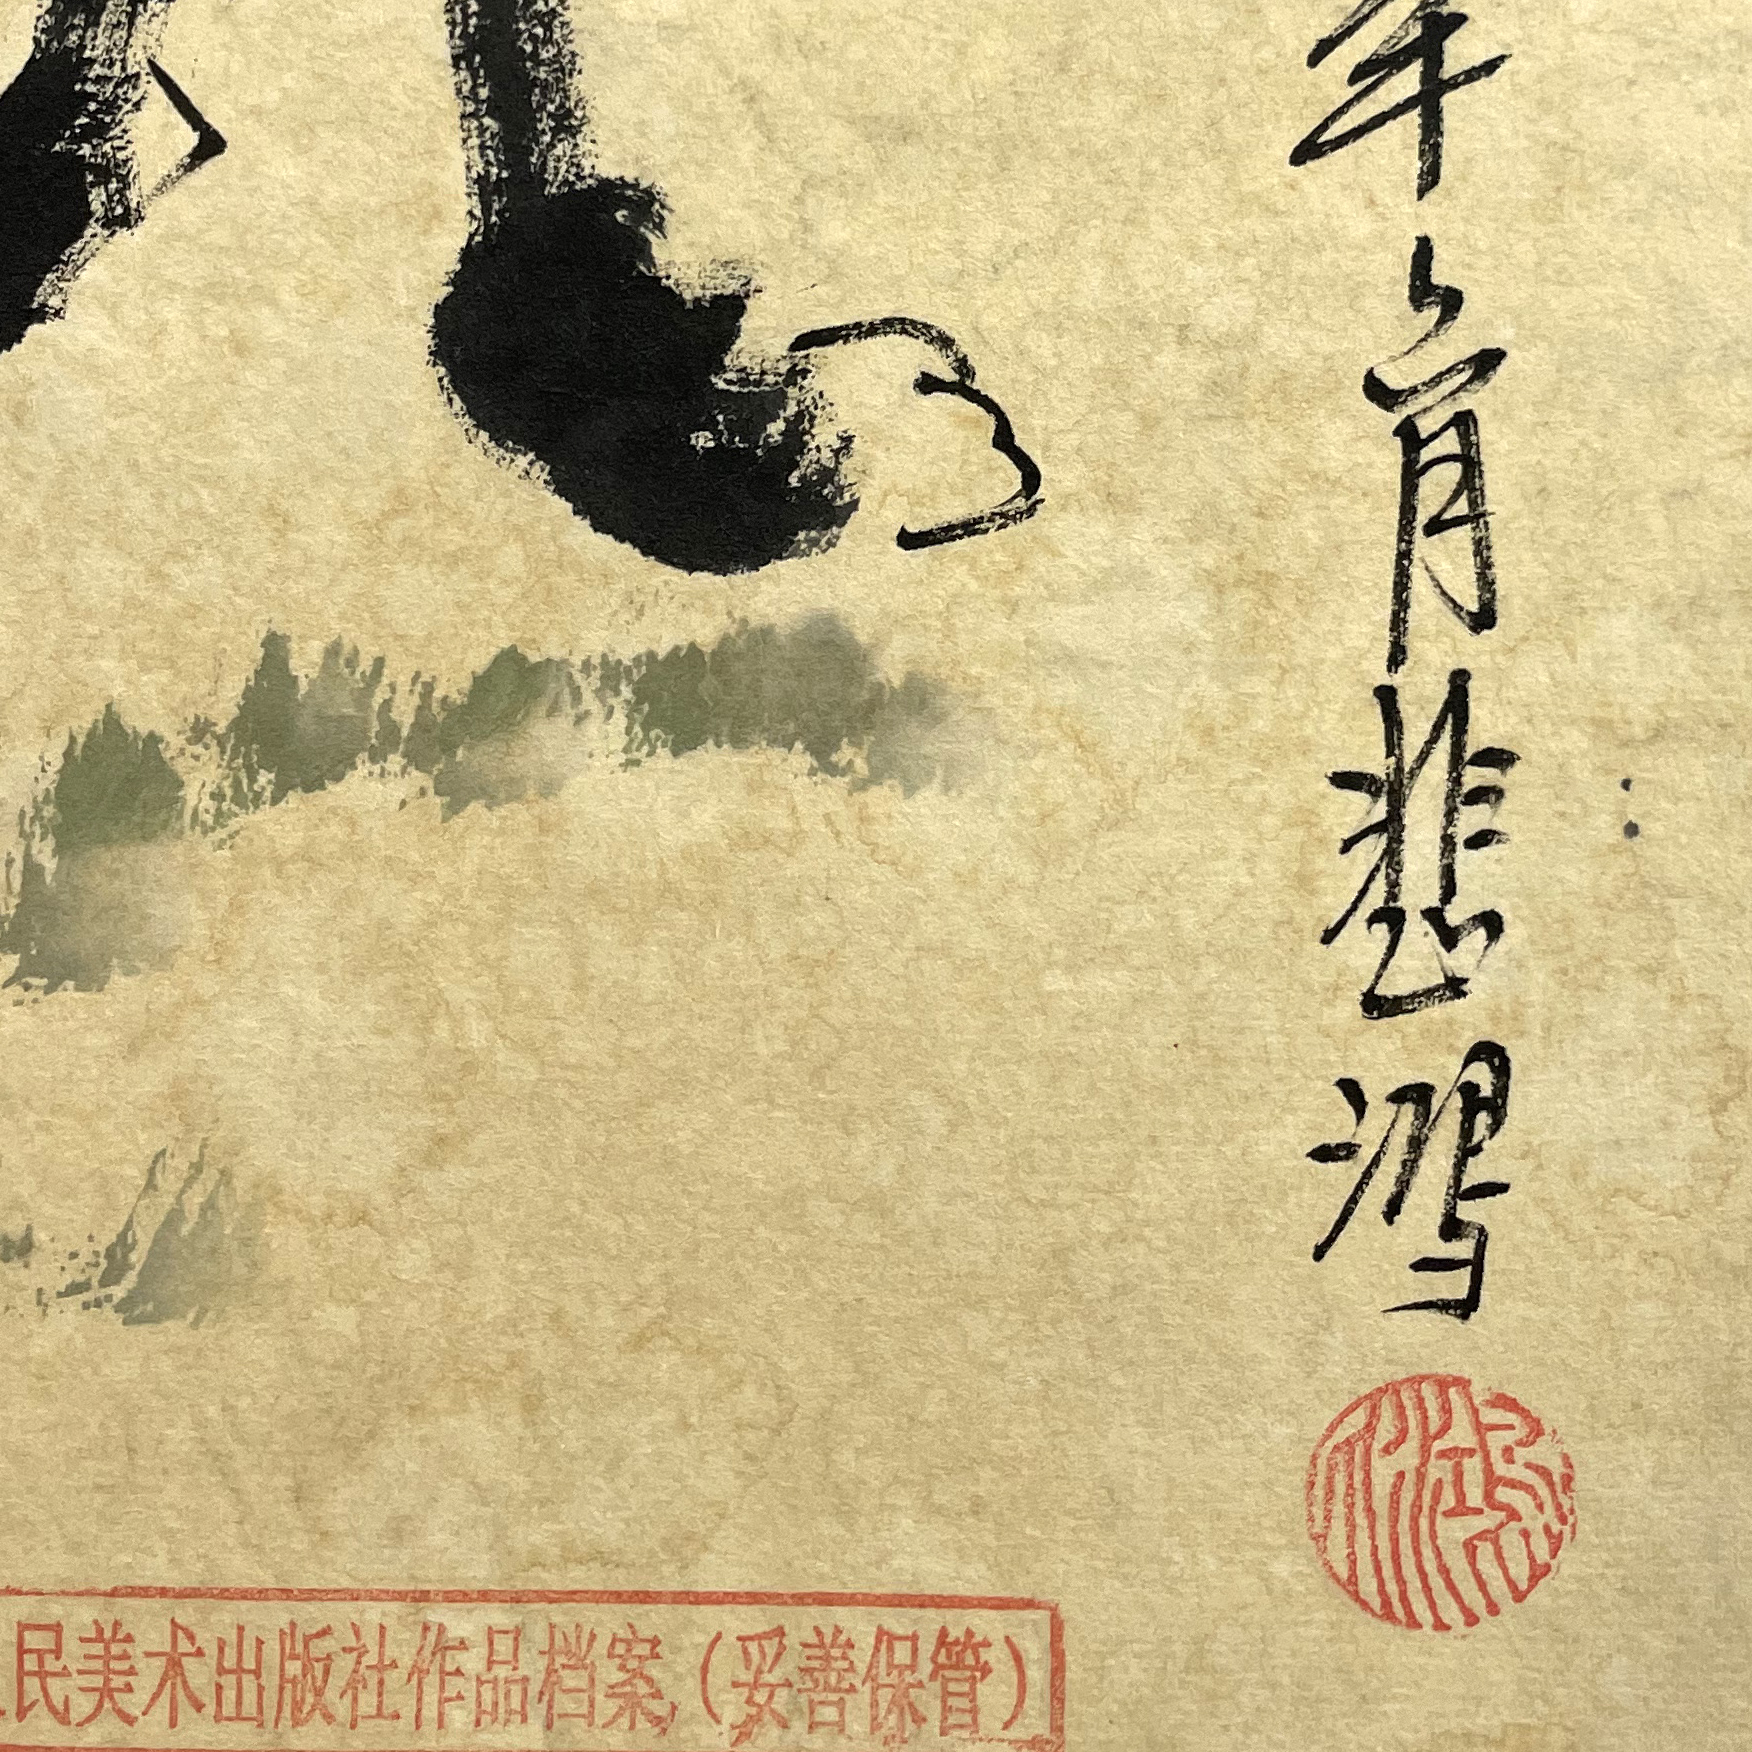 年六月悲鸿
民美术出版社作品档案（妥善保管）